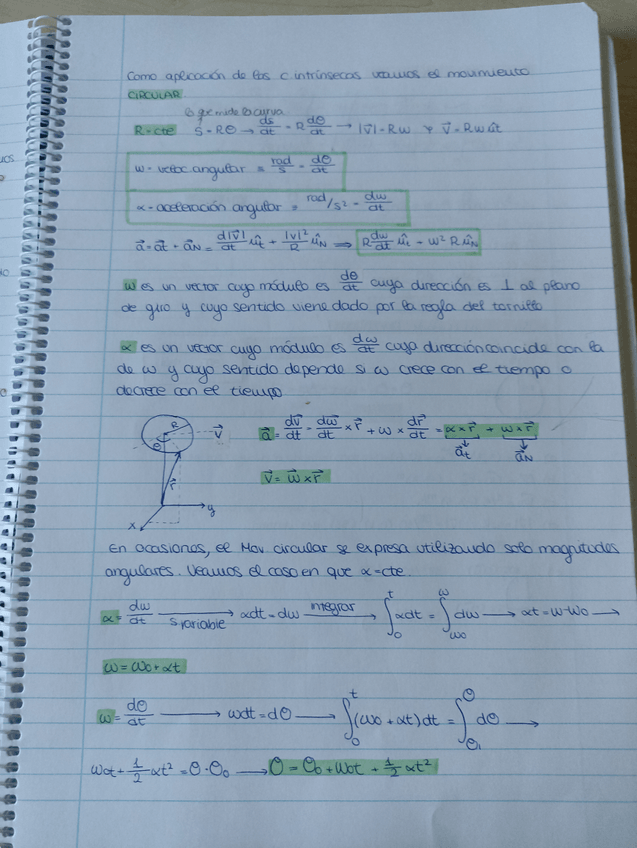 Como aplicación de las c intrínsecas veamos el movimiento
CIRCULAR.
lo que mide la curva
R = cte S = Rθ → ds/dt = R dθ/dt → |v⃗| = Rω y v⃗ = Rω û_t
ω = veloc angular = rad/s = dθ/dt
α = aceleración angular = rad/s² = dω/dt
a⃗ = a⃗_t + a⃗_N = d|v⃗|/dt û_t + |v|²/R û_N ⟹ R dω/dt û_t + ω² R û_N
ω es un vector cuyo módulo es dθ/dt cuya dirección es ⊥ al plano
de giro y cuyo sentido viene dado por la regla del tornillo
α es un vector cuyo módulo es dω/dt cuya dirección coincide con la
de ω y cuyo sentido depende si ω crece con el tiempo o
decrece con el tiempo.
R
θ
v⃗
r⃗
x
y
a⃗ = dv⃗/dt = dω⃗/dt × r⃗ + ω × dr⃗/dt = α × r⃗ + ω × r⃗
a⃗_t a⃗_N
v⃗ = ω⃗ × r⃗
En ocasiones, el Mov. circular se expresa utilizando solo magnitudes
angulares. Veamos el caso en que α = cte.
α = dω/dt → s variable αdt = dω → integrar ∫₀^t αdt = ∫_ω₀^ω dω → αt = ω - ω₀ →
ω = ω₀ + αt
ω = dθ/dt → ωdt = dθ → ∫₀^t (ω₀ + αt) dt = ∫_θ₁^θ dθ →
ω₀t + 1/2 αt² = θ - θ₀ → θ = θ₀ + ω₀t + 1/2 αt²